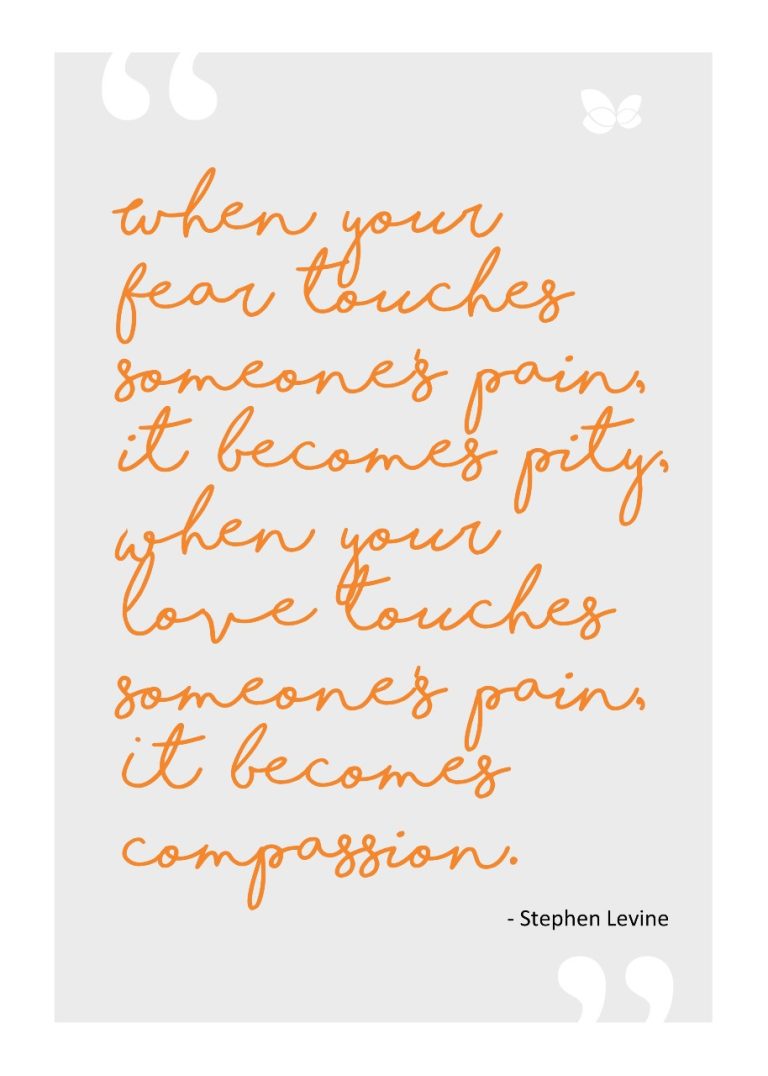 when your
fear touches
someone's pain,
it becomes pity,
when your
love touches
someone's pain,
it becomes
compassion.
- Stephen Levine